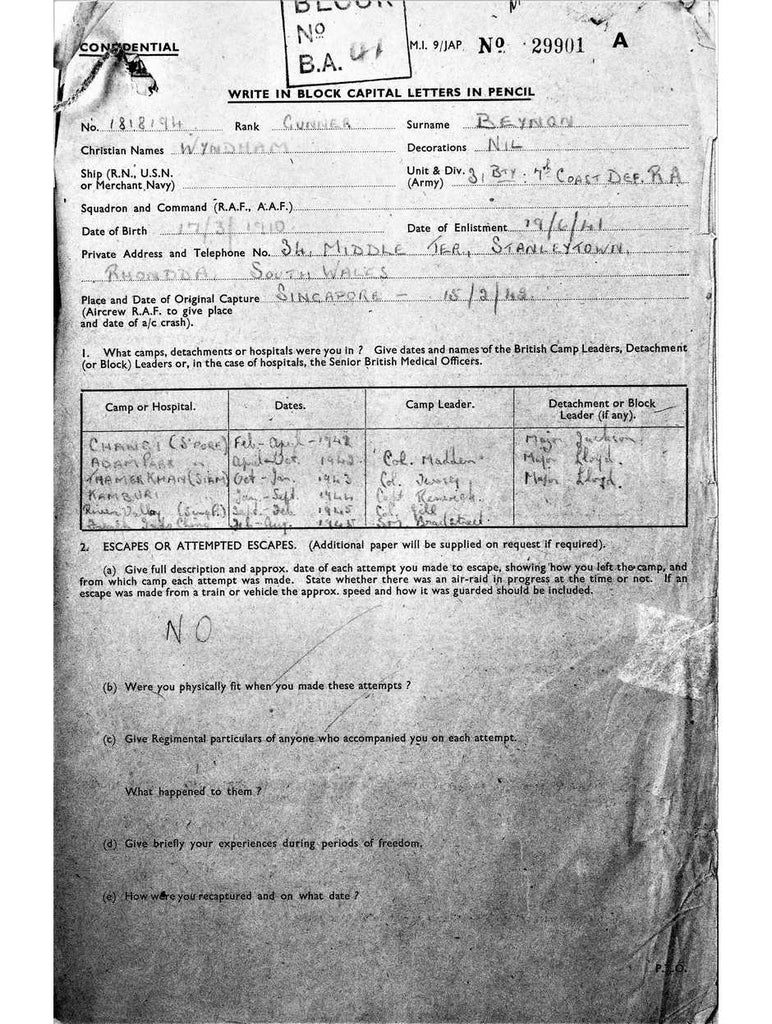 BLOCK
No
B.A. 41
CONFIDENTIAL
M.I. 9/JAP No 29901 A
WRITE IN BLOCK CAPITAL LETTERS IN PENCIL
No. 1818194 Rank GUNNER Surname BEYNON
Christian Names WYNDHAM Decorations NIL
Ship (R.N., U.S.N. or Merchant Navy)
Unit & Div. (Army) 31 BTY: 7th COAST DEF. R.A
Squadron and Command (R.A.F., A.A.F.)
Date of Birth 17/3/1910 Date of Enlistment 19/6/41
Private Address and Telephone No. 34, MIDDLE TER, STANLEYTOWN,
RHONDDA. SOUTH WALES
Place and Date of Original Capture SINGAPORE - 15/2/42.
(Aircrew R.A.F. to give place
and date of a/c crash).
1. What camps, detachments or hospitals were you in ? Give dates and names of the British Camp Leaders, Detachment
(or Block) Leaders or, in the case of hospitals, the Senior British Medical Officers.
Camp or Hospital. Dates. Camp Leader. Detachment or Block Leader (if any).
CHANGI (S'PORE) Feb-April-1942 Major Jackson.
ADAM PARK " April-Oct. 1942 Col. Madden Major Lloyd.
THAMERKHAN (SIAM) Oct-Jan. 1943 Col. Major Lloyd.
KAMBURI " Jan-Sept. 1944 Capt
River Valley Sept-Feb 1945 Col.
French Indo China Feb-Aug. 1945 Bradstreet.
2. ESCAPES OR ATTEMPTED ESCAPES. (Additional paper will be supplied on request if required).
(a) Give full description and approx. date of each attempt you made to escape, showing how you left the camp, and
from which camp each attempt was made. State whether there was an air-raid in progress at the time or not. If an
escape was made from a train or vehicle the approx. speed and how it was guarded should be included.
NO
(b) Were you physically fit when you made these attempts ?
(c) Give Regimental particulars of anyone who accompanied you on each attempt.
What happened to them ?
(d) Give briefly your experiences during periods of freedom.
(e) How were you recaptured and on what date ?
P.T.O.